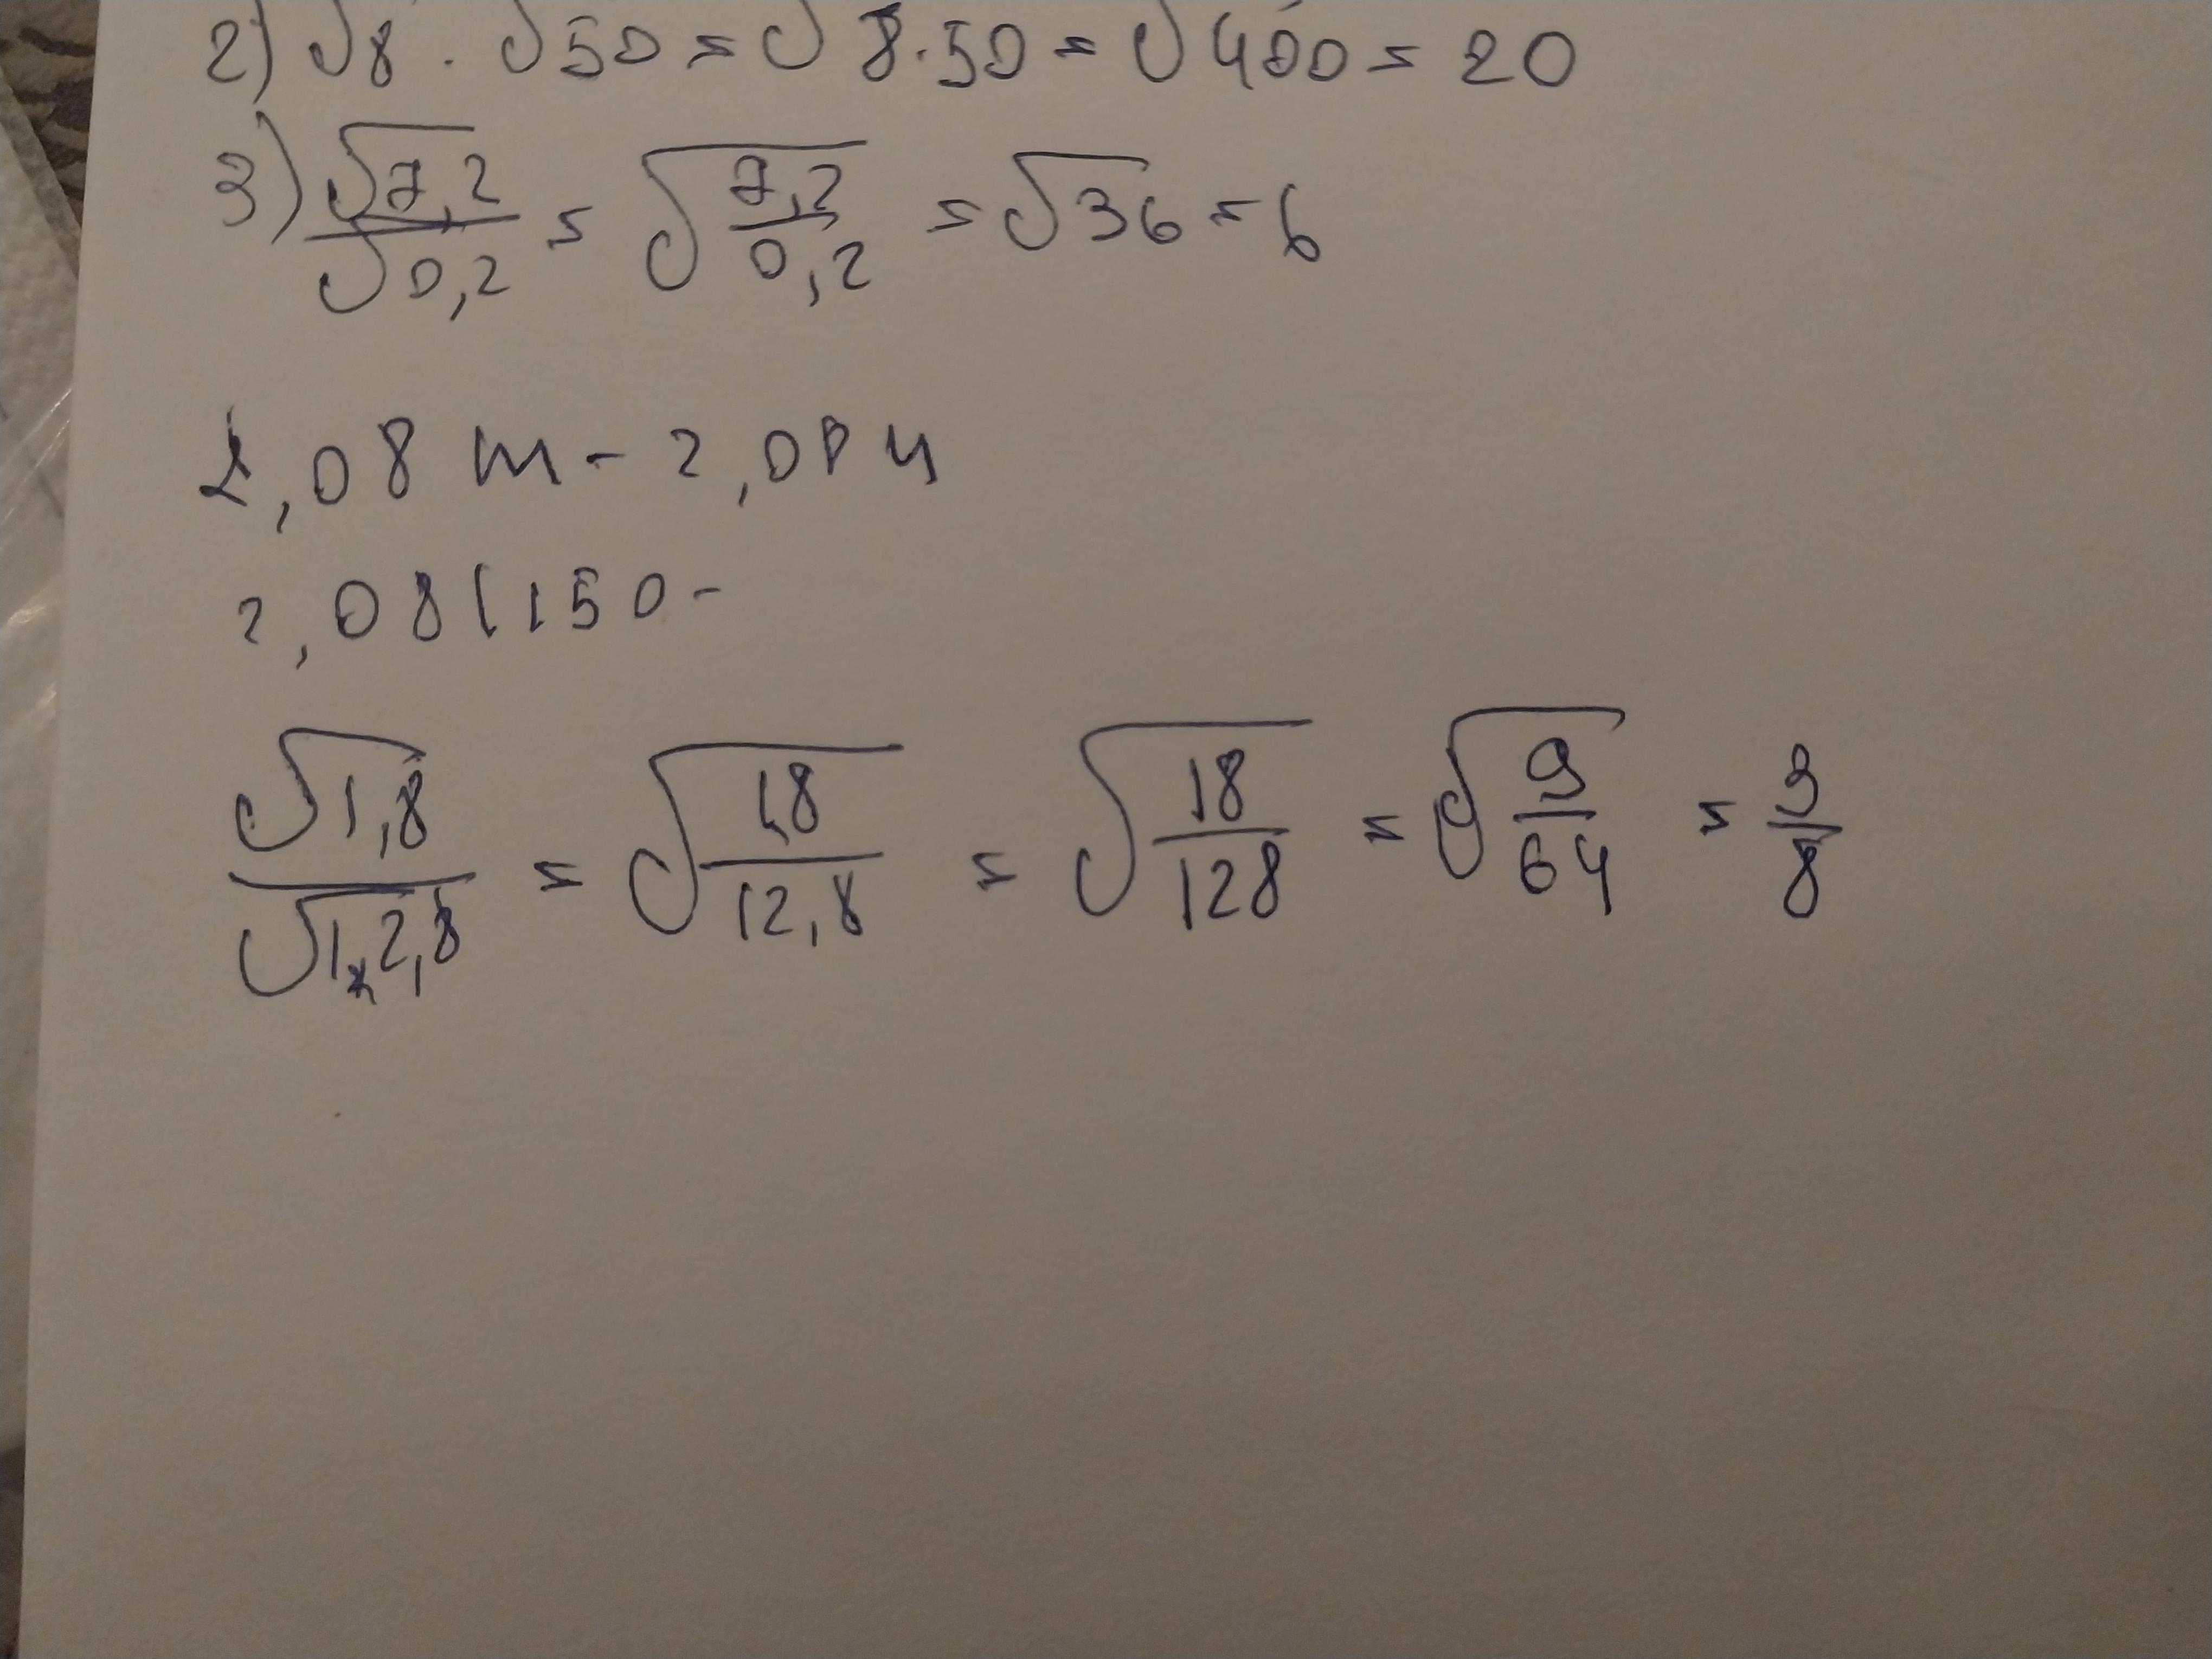 2) √8 · √50 = √8·50 = √400 = 20
3) √7,2 / √0,2 = √(7,2 / 0,2) = √36 = 6
2,08 т - 2,08 ч
2,08(150 -
√1,8 / √12,8 = √(1,8 / 12,8) = √(18 / 128) = √(9 / 64) = 3 / 8